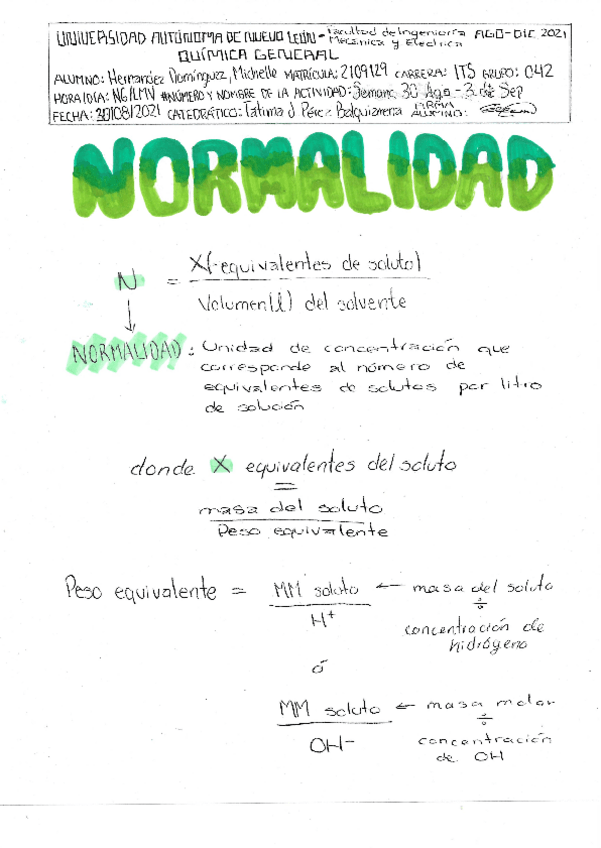 UNIVERSIDAD AUTÓNOMA DE NUEVO LEÓN - Facultad de Ingeniería Mecánica y Eléctrica AGO-DIC 2021
QUÍMICA GENERAL
ALUMNO: Hernández Domínguez, Michelle MATRÍCULA: 2109129 CARRERA: ITS GRUPO: 042
HORA/DÍA: N6/LMV #NÚMERO Y NOMBRE DE LA ACTIVIDAD: Semana 30 Ago - 3 de Sep
FECHA: 30/08/2021 CATEDRÁTICO: Fatima J Pérez Balquiarena FIRMA ALUMNO:
NORMALIDAD
N = X(-equivalentes de soluto)
Volumen(l) del solvente
NORMALIDAD: Unidad de concentración que
corresponde al número de
equivalentes de solutos por litro
de solución
donde X equivalentes del soluto
=
masa del soluto
Peso equivalente
Peso equivalente = MM soluto ← masa del soluto
÷
H+
concentración de
hidrógeno
ó
MM soluto ← masa molar
÷
OH-
concentración
de OH